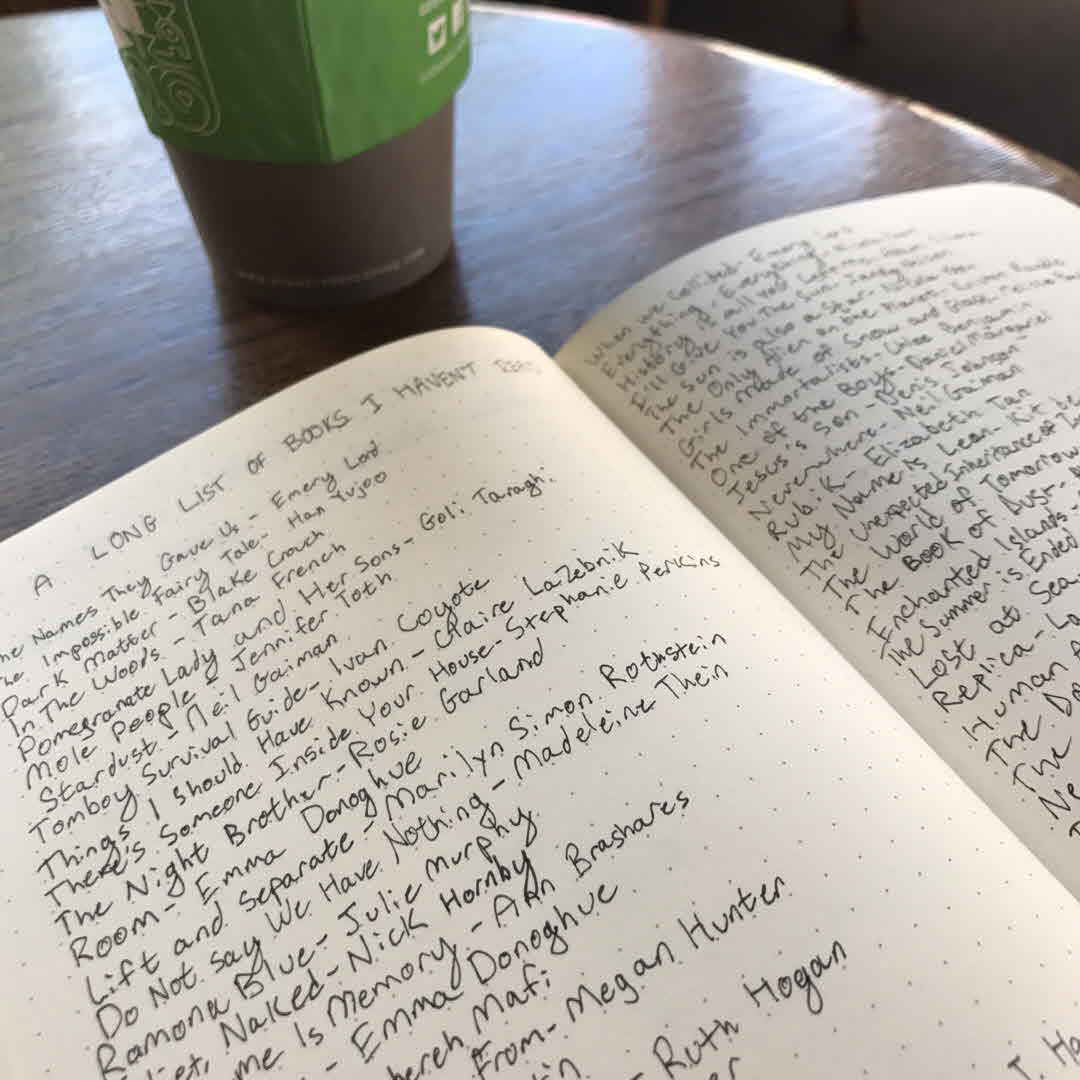 A LONG LIST OF BOOKS I HAVEN'T READ
The Names They Gave Us - Emery Lord
The Impossible Fairy Tale - Han Yujoo
Dark Matter - Blake Crouch
In The Woods - Tana French
Pomegranate Lady and Her Sons - Goli Taraghi
Mole People - Jennifer Toth
Stardust - Neil Gaiman
Tomboy Survival Guide - Ivan Coyote
Things I Should Have Known - Claire LaZebnik
There's Someone Inside Your House - Stephanie Perkins
The Night Brother - Rosie Garland
Room - Emma Donoghue
Lift and Separate - Marilyn Simon Rothstein
Do Not Say We Have Nothing - Madeleine Thein
Ramona Blue - Julie Murphy
Naked - Nick Hornby
me Is Memory - Ann Brashares
- Emma Donoghue
hereh Mafi
From - Megan Hunter
- Ruth Hogan
When we Collided - Emery Lord
Everything, Everything
History is all you Left me - Adam Silvera
I'll Give You The Sun - Jandy Nelson
The Sun is also a Star
The Only Alien on the Planet
Girls Made of Snow and Glass - Melissa
The Immortalists - Chloe Benjamin
One of the Boys - Daniel Magariel
Jesus's Son - Denis Johnson
Neverwhere - Neil Gaiman
Rubik - Elizabeth Tan
My Name is Leon - Kit de
The Unexpected Inheritance of
The World of Tomorrow
The Book of Dust -
Enchanted Islands -
The Summer is Ended
Lost at Sea
Replica - La
Human
The
The
Ne
J. Ha